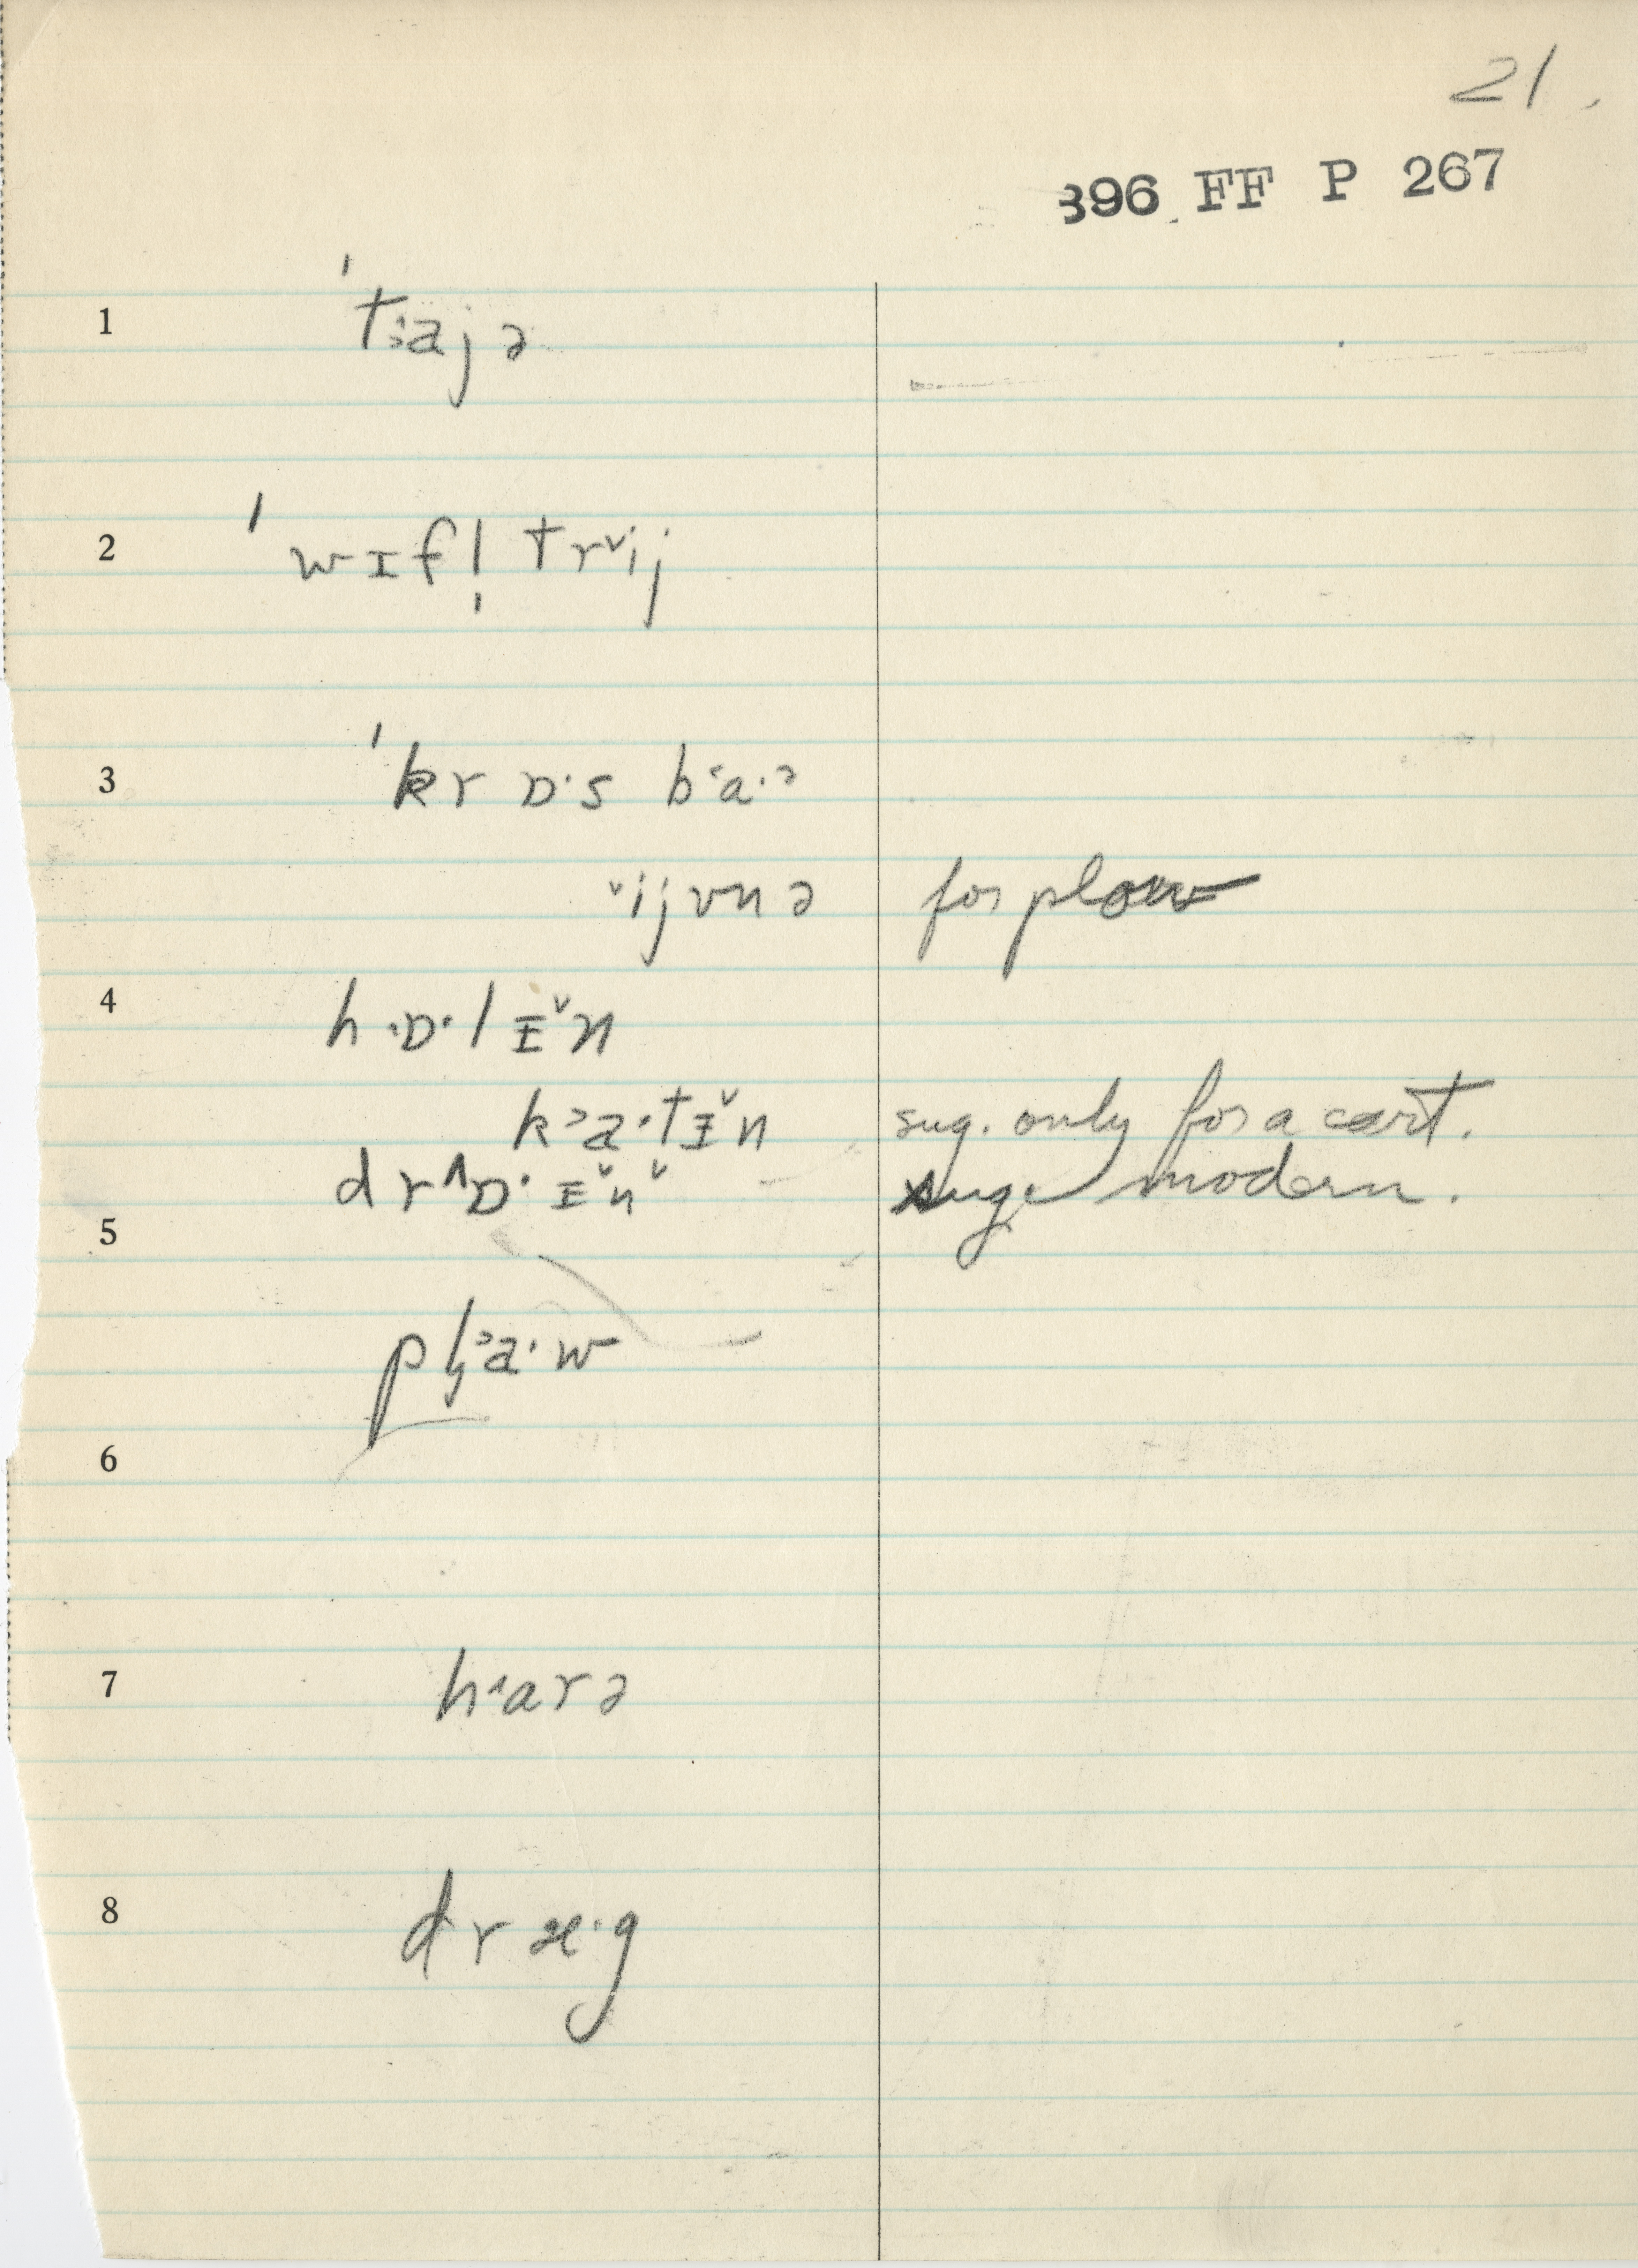 21.
396 FF P 267
1 ˈt˒ajə
2 ˈwɪfl̩ trˇij
3 ˈkrɒ·s b˂a·ə
ˇijvnə for plow
4 h·ɒ·lɪˇn
k˒a·tɪˇn sug. only for a cart.
drʌɒ·ɪˇnˇ sug. modern.
5
pl̥˒a·w
6
7 h˂arə
8 dræ·g